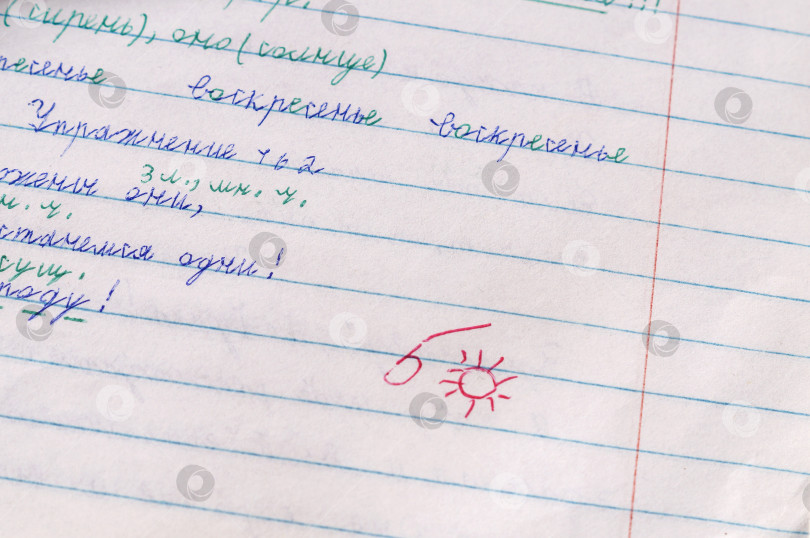 (сирень), оно (солнце)
ресенье воскресенье воскресенье
Упражнение 162
3 л., мн. ч.
ожены они,
н. ч.
станемся одни!
сущ.
поду!
5